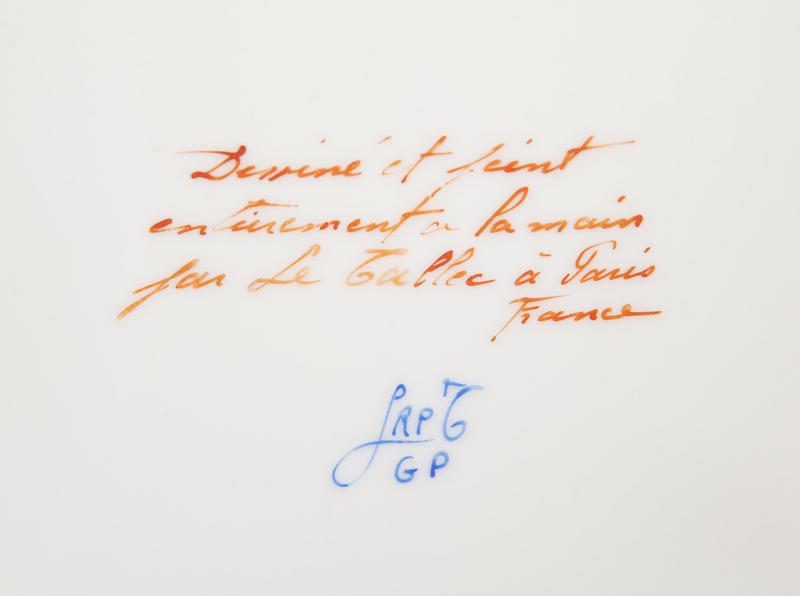 Dessiné et peint
entierement a la main
par Le Tallec à Paris
France
LRPT
GP